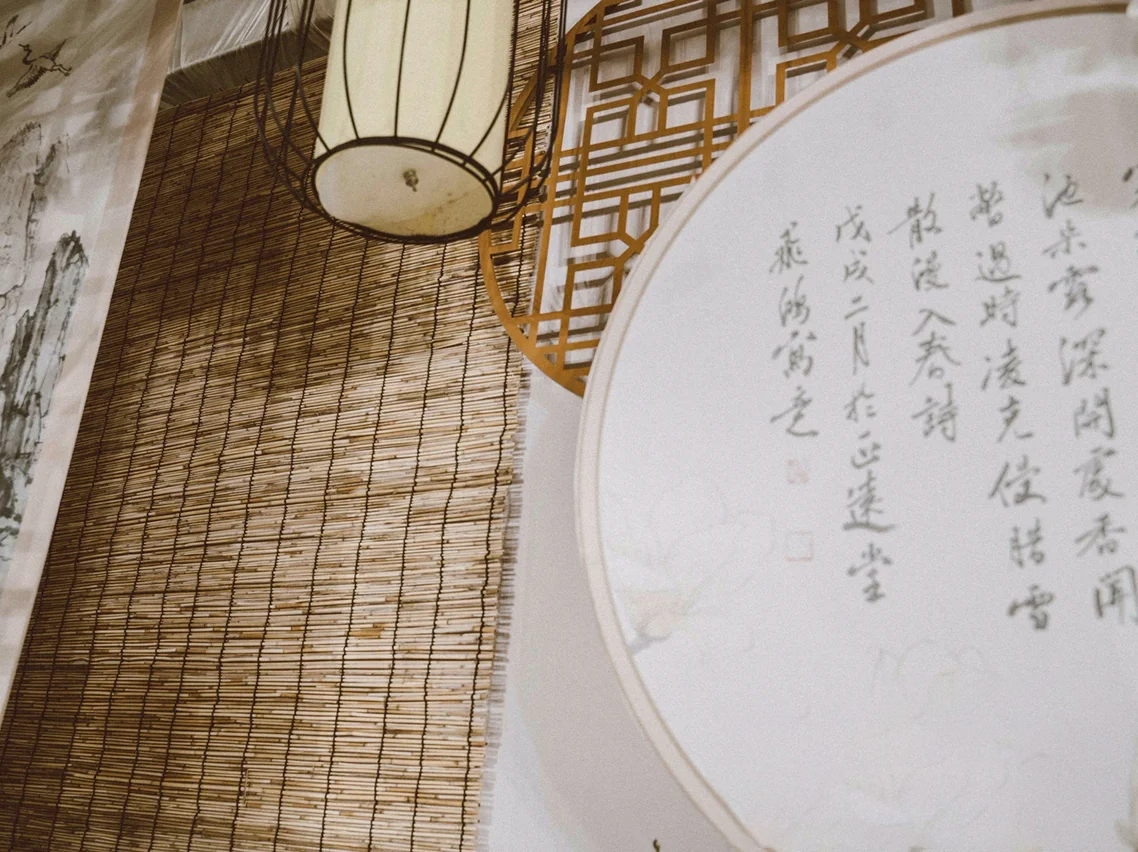 池朵露深開處香聞
暫過時凌克使臘雪
散漫入春詩
戊戌二月於正遠堂
飛鴻寫意